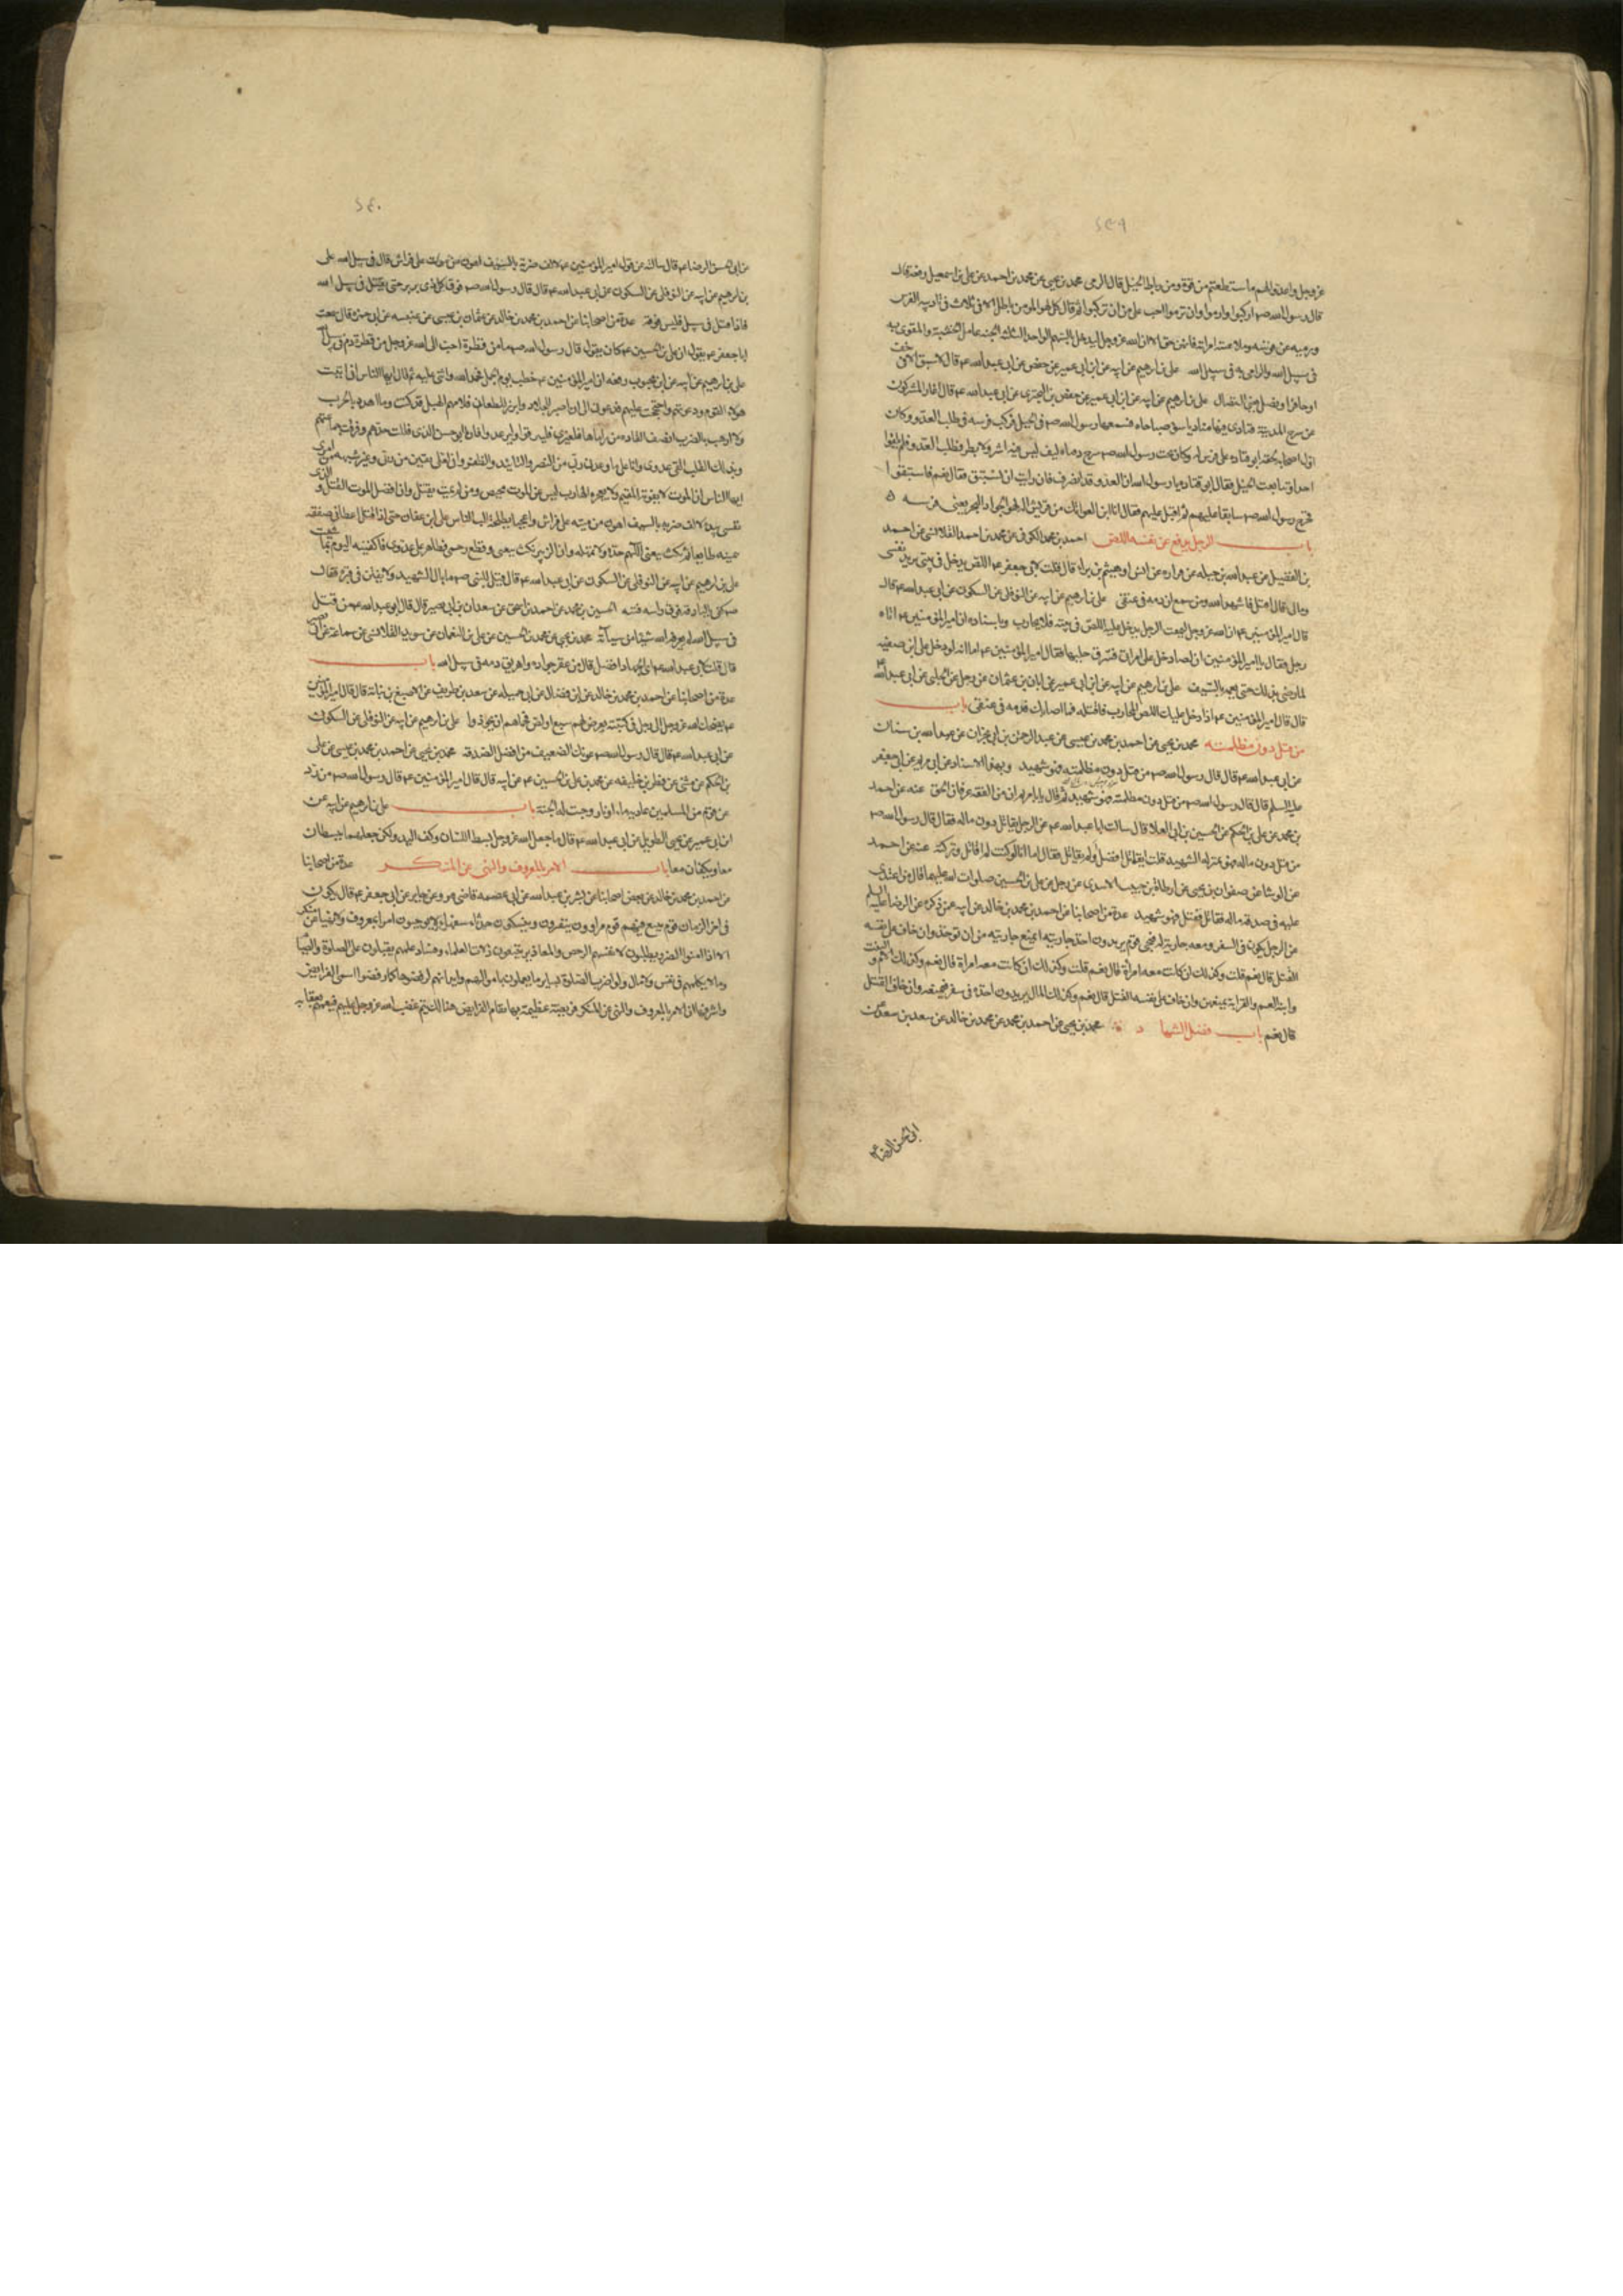 ٢٤٩
عز وجل واعدوا لهم ما استطعتم من قوة ومن رباط الخيل قال الرمى محمد بن يحيى عن محمد بن احمد عن على بن اسمعيل رفعه قال
قال رسول الله صم اركبوا وارموا وان ترموا احب على من ان تركبوا ثم قال كل لهو المومن باطل الا فى ثلاث فى تاديبه الفرس
ورميه عن قوسه وملاعبته امراته فانهن حق الا ان الله عز وجل ليدخل بالسهم الواحد الثلثة الجنة عامل الخشبة والمقوى به
فى سبيل الله والرامى به فى سبيل الله على بن ابرهيم عن ابيه عن ابن ابى عمير عن حفص عن ابى عبد الله عم قال لا سبق الا فى خف
او حافر او نصل يعنى النضال على بن ابرهيم عن ابيه عن ابن ابى عمير عن حفص بن البخترى عن ابى عبد الله عم قال اغار المشركون
عن سرح المدينة فنادى فيها مناد يا سوء صباحاه فسمعها رسول الله صم فى الخيل فركب فرسه فى طلب العدو وكان
اول اصحابه لحقه ابو قتاده على فرس له وكان تحت رسول الله صم سرج دفتاه ليف ليس فيه اشر ولا بطر فطلب العدو فلم يلقوا
احدا وتتابعت الخيل فقال ابو قتاده يا رسول الله ان العدو قد انصرف فان رايت ان نستبق فقال نعم فاستبقوا
فخرج رسول الله صم سابقا عليهم ثم اقبل عليهم فقال انا ابن العواتك من قريش انه لهو الجواد البحر يعنى فرسه
باب الرجل يدفع عن نفسه اللص احمد بن محمد الكوفى عن محمد بن احمد القلانسى عن احمد
بن الفضيل عن عبد الله بن جبله عن فزاره عن انس او هيثم بن براء قال قلت لابى جعفر عم اللص يدخل فى بيتى يريد نفسى
ومالى قال اقتل فاشهد الله ومن سمع ان دمه فى عنقى على بن ابرهيم عن ابيه عن النوفلى عن السكونى عن ابى عبد الله عم قال
قال امير المؤمنين عم ان الله عز وجل ليمقت الرجل يدخل عليه اللص فى بيته فلا يحارب وباسناده ان امير المؤمنين عم اتاه
رجل فقال يا امير المؤمنين ان لصا دخل على امراتى فسرق حليها فقال امير المؤمنين عم اما انه لو دخل على ابن صفيه
لما رضى بذلك حتى يعمه بالسيف على بن ابرهيم عن ابيه عن ابن ابى عمير عن ابان بن عثمان عن رجل عن الحلبى عن ابى عبد الله
قال قال امير المؤمنين عم اذا دخل عليك اللص المحارب فاقتله فما اصابك فدمه فى عنقى باب
من قتل دون مظلمته محمد بن يحيى عن احمد بن محمد بن عيسى عن عبد الرحمن بن ابى نجران عن عبد الله بن سنان
عن ابى عبد الله عم قال قال رسول الله صم من قتل دون مظلمته فهو شهيد وبهذا الاسناد عن ابى مريم عن ابى جعفر
عليه السلم قال قال رسول الله صم من قتل دون مظلمته فهو شهيد ثم قال يا با مريم ان من الفقه عرفان الحق عنه عن احمد
بن محمد عن على بن الحكم عن الحسين بن ابى العلا قال سالت ابا عبد الله عم عن الرجل يقاتل دون ماله فقال قال رسول الله صم
من قتل دون ماله فهو بمنزله الشهيد قلت ايقاتل افضل او لم يقاتل فقال اما انا لو كنت لم اقاتل وتركته عنه عن احمد
عن الوشا عن صفوان بن يحيى عن ارطاة بن حبيب الاسدى عن رجل عن على بن الحسين صلوات الله عليهما قال من اعتدى
عليه فى صدقة ماله فقاتل فقتل فهو شهيد عدة من اصحابنا عن احمد بن محمد بن خالد عن ابيه عمن ذكره عن الرضا عليه السلم
عن الرجل يكون فى السفر ومعه جارية له فيجئ قوم يريدون اخذ جاريته ايمنع جاريته من ان توخذ وان خاف على نفسه
القتل قال نعم قلت وكذلك ان كانت معه امرأة قال نعم قلت وكذلك الام والبنت
وابنة العم والقرابة يمنعهن وان خاف على نفسه القتل قال نعم وكذلك المال يريدون اخذه فى سفر فيمنعه وان خاف القتل
قال نعم باب فضل الشهادة محمد بن يحيى عن احمد بن محمد عن محمد بن خالد عن سعد بن سعد عن
ابى الحسن الرضا ع
٢٤٠
عن ابى الحسن الرضا عم قال سالته عن قول امير المؤمنين عم لالف ضربة بالسيف اهون من موت على فراش قال فى سبيل الله على
بن ابرهيم عن ابيه عن النوفلى عن السكونى عن ابى عبد الله عم قال قال رسول الله صم فوق كل ذى بر بر حتى يقتل فى سبيل الله
فاذا قتل فى سبيل فليس فوقه عدة من اصحابنا عن احمد بن محمد بن خالد عن عثمان بن عيسى عن عنبسه عن ابى حمزه قال سمعت
ابا جعفر عم يقول ان على بن الحسين عم كان يقول قال رسول الله صم ما من قطرة احب الى الله عز وجل من قطرة دم فى سبيل الله
على بن ابرهيم عن ابيه عن ابن محبوب رفعه ان امير المؤمنين عم خطب يوم الجمل فحمد الله واثنى عليه ثم قال ايها الناس انى اتيت
هولاء القوم ودعوتهم واحتججت عليهم فدعونى الى ان اصبر للجلاد وابرز للطعان فلامهم الهبل قد كنت وما اهدد بالحرب
ولا ارهب بالضرب انصف القاره من راماها فلغيرى فليبرقوا وليرعدوا فانا ابو حسن الذى فللت حدهم وفرقت جماعتهم
وبذلك القلب القى عدوى وانا على ما وعدنى ربى من النصر والتائيد والظفر وانى لعلى يقين من ربى وغير شبهه من امرى
ايها الناس ان الموت لا يفوته المقيم ولا يعجزه الهارب ليس عن الموت محيص ومن لم يمت يقتل وان افضل الموت القتل والذى
نفسى بيده لالف ضربه بالسيف اهون من ميته على فراش واعجبا لطلحة البا الناس على ابن عفان حتى اذا قتل اعطانى صفقة
يمينه طايعا ثم نكث بيعتى اللهم خذه ولا تمهله وان الزبير نكث بيعتى وقطع رحمى وظاهر على عدوى فاكفنيه اليوم بما شئت
على بن ابرهيم عن ابيه عن النوفلى عن السكونى عن ابى عبد الله عم قال قيل للنبى صم ما بال الشهيد لا يفتن فى قبره فقال
صم كفى بالبارقة فوق راسه فتنه الحسين بن محمد عن احمد بن اسحق عن سعدان عن ابى بصير قال قال ابو عبد الله عم من قتل
فى سبيل الله لم يعرفه الله شيئا من سيآته محمد بن يحيى عن محمد بن الحسين عن على بن النعمان عن سويد القلانسى عن سماعة عن ابى بصير
قال قلت لابى عبد الله عم اى الجهاد افضل قال من عقر جواده واهريق دمه فى سبيل الله باب
عدة من اصحابنا عن احمد بن محمد بن خالد عن ابن فضال عن ابى جميله عن سعد بن طريف عن الاصبغ بن نباتة قال قال امير المؤمنين
على بن ابرهيم عن ابيه عن النوفلى عن السكونى
عن ابى عبد الله عم قال قال رسول الله صم عونك الضعيف من افضل الصدقة محمد بن يحيى عن احمد بن محمد بن عيسى عن على
بن الحكم عن مثنى عن فطر بن خليفه عن محمد بن على بن الحسين عم عن ابيه قال قال امير المؤمنين عم قال رسول الله صم من رد
عن قوم من المسلمين عاديه ماء او نار وجبت له الجنة باب على بن ابرهيم عن ابيه عن
ابن ابى عمير عن يحيى الطويل عن ابى عبد الله عم قال ما جعل الله عز وجل بسط اللسان وكف اليد ولكن جعلهما يبسطان
معا ويكفان معا باب الامر بالمعروف والنهى عن المنكر عدة من اصحابنا
عن احمد بن محمد بن خالد عن بعض اصحابنا عن بشر بن عبد الله عن ابى عصمه قاضى مرو عن جابر عن ابى جعفر عم قال يكون
فى اخر الزمان قوم يتبع فيهم قوم مراوون يتقرون ويتنسكون حدثاء سفهاء لا يوجبون امرا بمعروف ولا نهيا عن منكر
الا اذا امنوا الضرر يطلبون لانفسهم الرخص والمعاذير يتبعون زلات العلماء وفساد علمهم يقبلون على الصلوة والصيام
وما لا يكلمهم فى نفس ولا مال ولو اضرت الصلوة بساير ما يعملون باموالهم وابدانهم لرفضوها كما رفضوا اسمى الفرايض
واشرفها ان الامر بالمعروف والنهى عن المنكر فريضة عظيمة بها تقام الفرايض هنالك يتم غضب الله عز وجل عليهم فيعمهم بعقابه